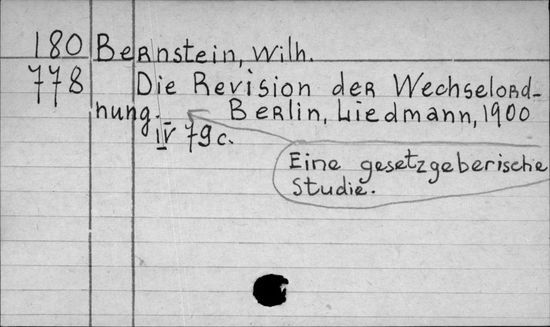 180 Bernstein, Wilh.
778 Die Revision der Wechselord-
nung. Berlin, Liedmann, 1900
IV 79c.
Eine gesetzgeberische
Studie.